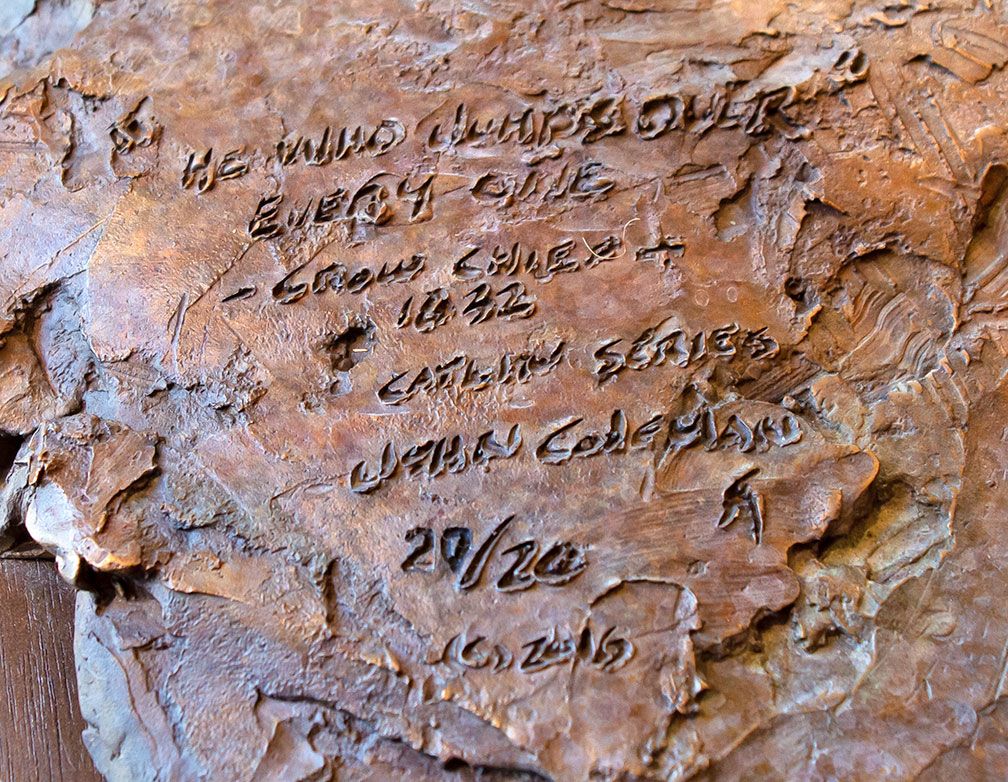 HE WHO JUMPS OVER
EVERY ONE
- CROW CHIEF +
1832
CATLIN SERIES
JOHN COLEMAN
20/20
© 2016